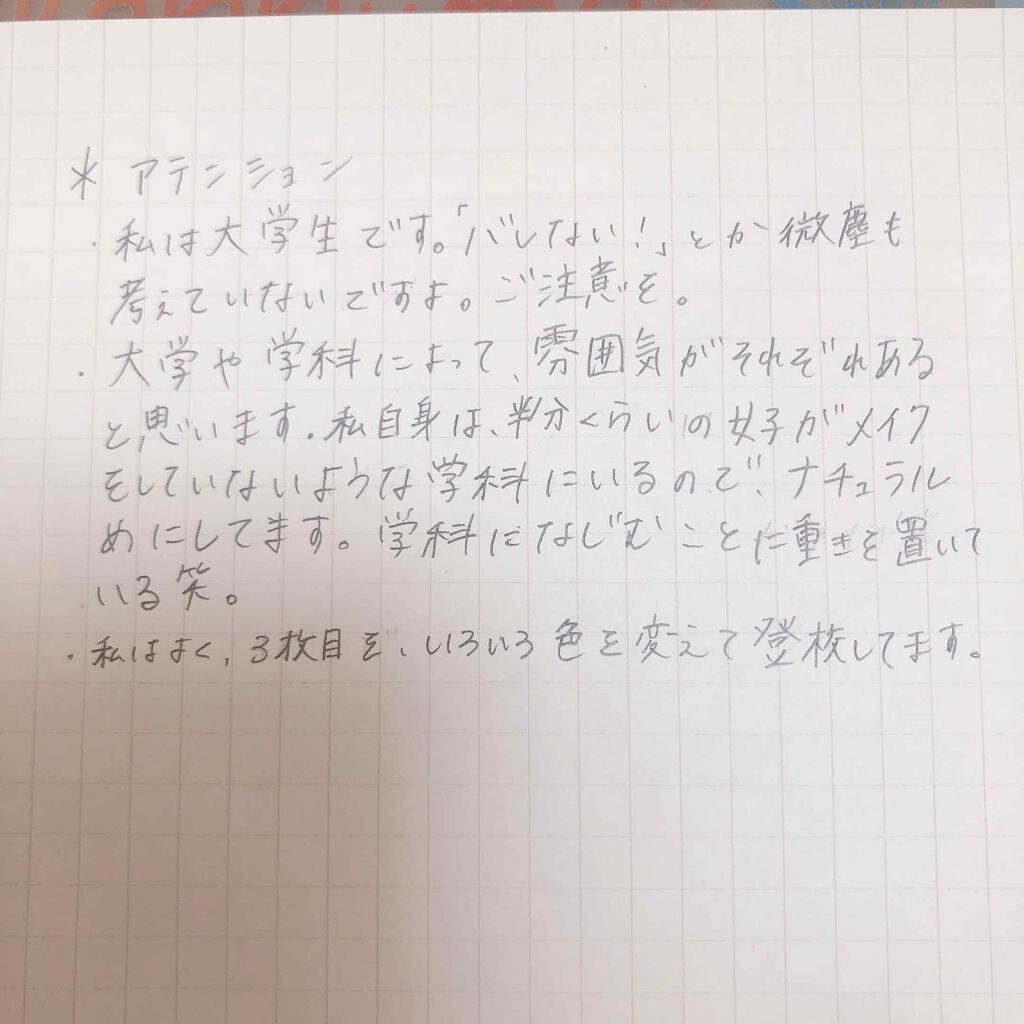 * アテンション
・私は大学生です。「バレない!」とか微塵も
考えていないですよ。ご注意を。
・大学や学科によって、雰囲気がそれぞれある
と思います。私自身は、半分くらいの女子がメイク
をしていないような学科にいるので、ナチュラル
めにしてます。学科になじむことに重きを置いて
いる笑。
・私はよく、3枚目を、いろいろ色を変えて登校してます。